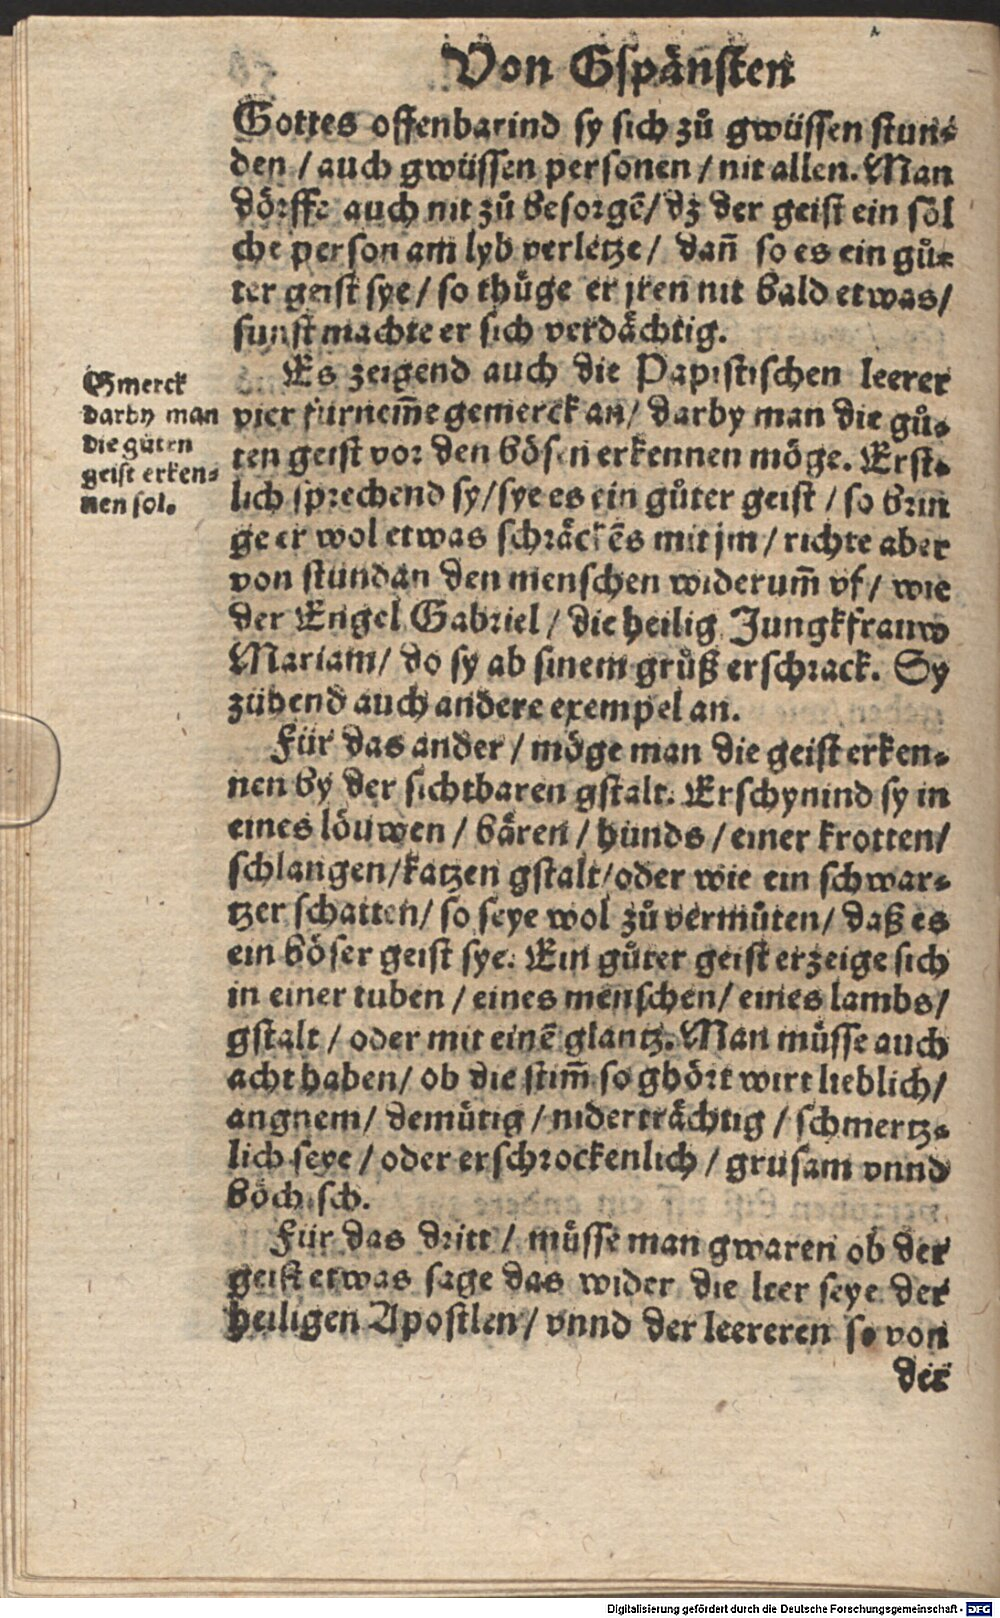 Von Gspånsten
Gottes offenbarind sy sich zů gwüssen stun⸗
den / auch gwüssen personen / nit allen. Man
dörffe auch nit zů besorgē / dz der geist ein söl
che person am lyb verletze / dañ so es ein gů⸗
ter geist sye / so thüge er jren nit bald etwas /
sunst machte er sich verdächtig.
Es zeigend auch die Papistischen leerer
vier fürnem̃e gemerck an / darby man die gů⸗
ten geist vor den bösen erkennen möge. Erst⸗
lich sprechend sy / sye es ein gůter geist / so brin
ge er wol etwas schräckēs mit jm / richte aber
von stundan den menschen widerum̃ vf / wie
der Engel Gabriel / die heilig Jungkfrauw
Mariam / do sy ab sinem grůß erschrack. Sy
zühend auch andere exempel an.
Gmerck
darby man
die gůten
geist erken⸗
nen sol.
Für das ander / möge man die geist erken⸗
nen by der sichtbaren gstalt. Erschynind sy in
eines löuwen / bären / hunds / einer krotten /
schlangen / katzen gstalt / oder wie ein schwar⸗
tzer schatten / so seye wol zů vermůten / daß es
ein böser geist sye. Ein gůter geist erzeige sich
in einer tuben / eines menschen / eines lambs /
gstalt / oder mit einē glantz. Man müsse auch
acht haben / ob die stim̃ so ghört wirt lieblich /
angnem / demütig / niderträchtig / schmertz⸗
lich seye / oder erschrockenlich / grusam vnnd
böchisch.
Für das dritt / müsse man gwaren ob der
geist etwas sage das wider die leer seye der
heiligen Apostlen / vnnd der leereren so von
der
Digitalisierung gefördert durch die Deutsche Forschungsgemeinschaft - DFG